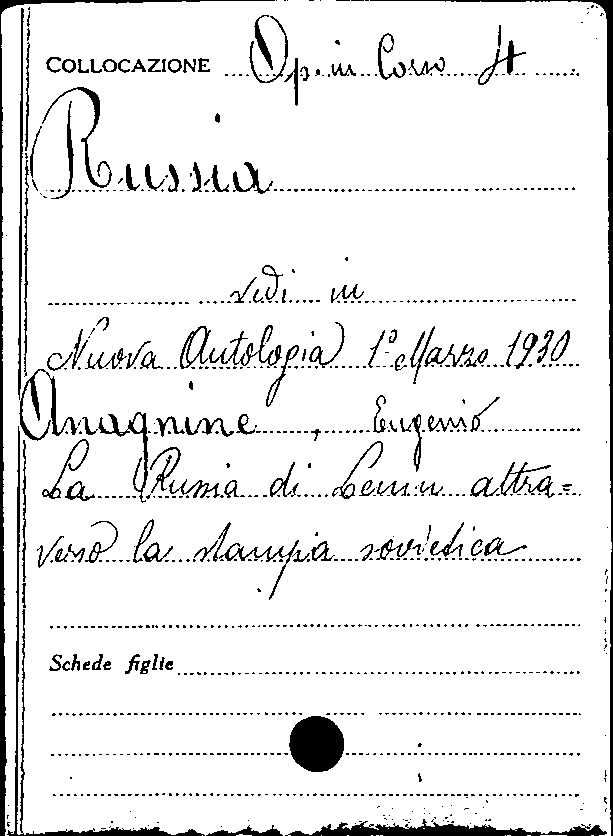 COLLOCAZIONE Op. in Corso 4
Russia
vedi in
Nuova Antologia 1° Marzo 1930
Anagnine, Eugenio
La Russia di Lenin attra=
verso la stampa sovietica
Schede figlie